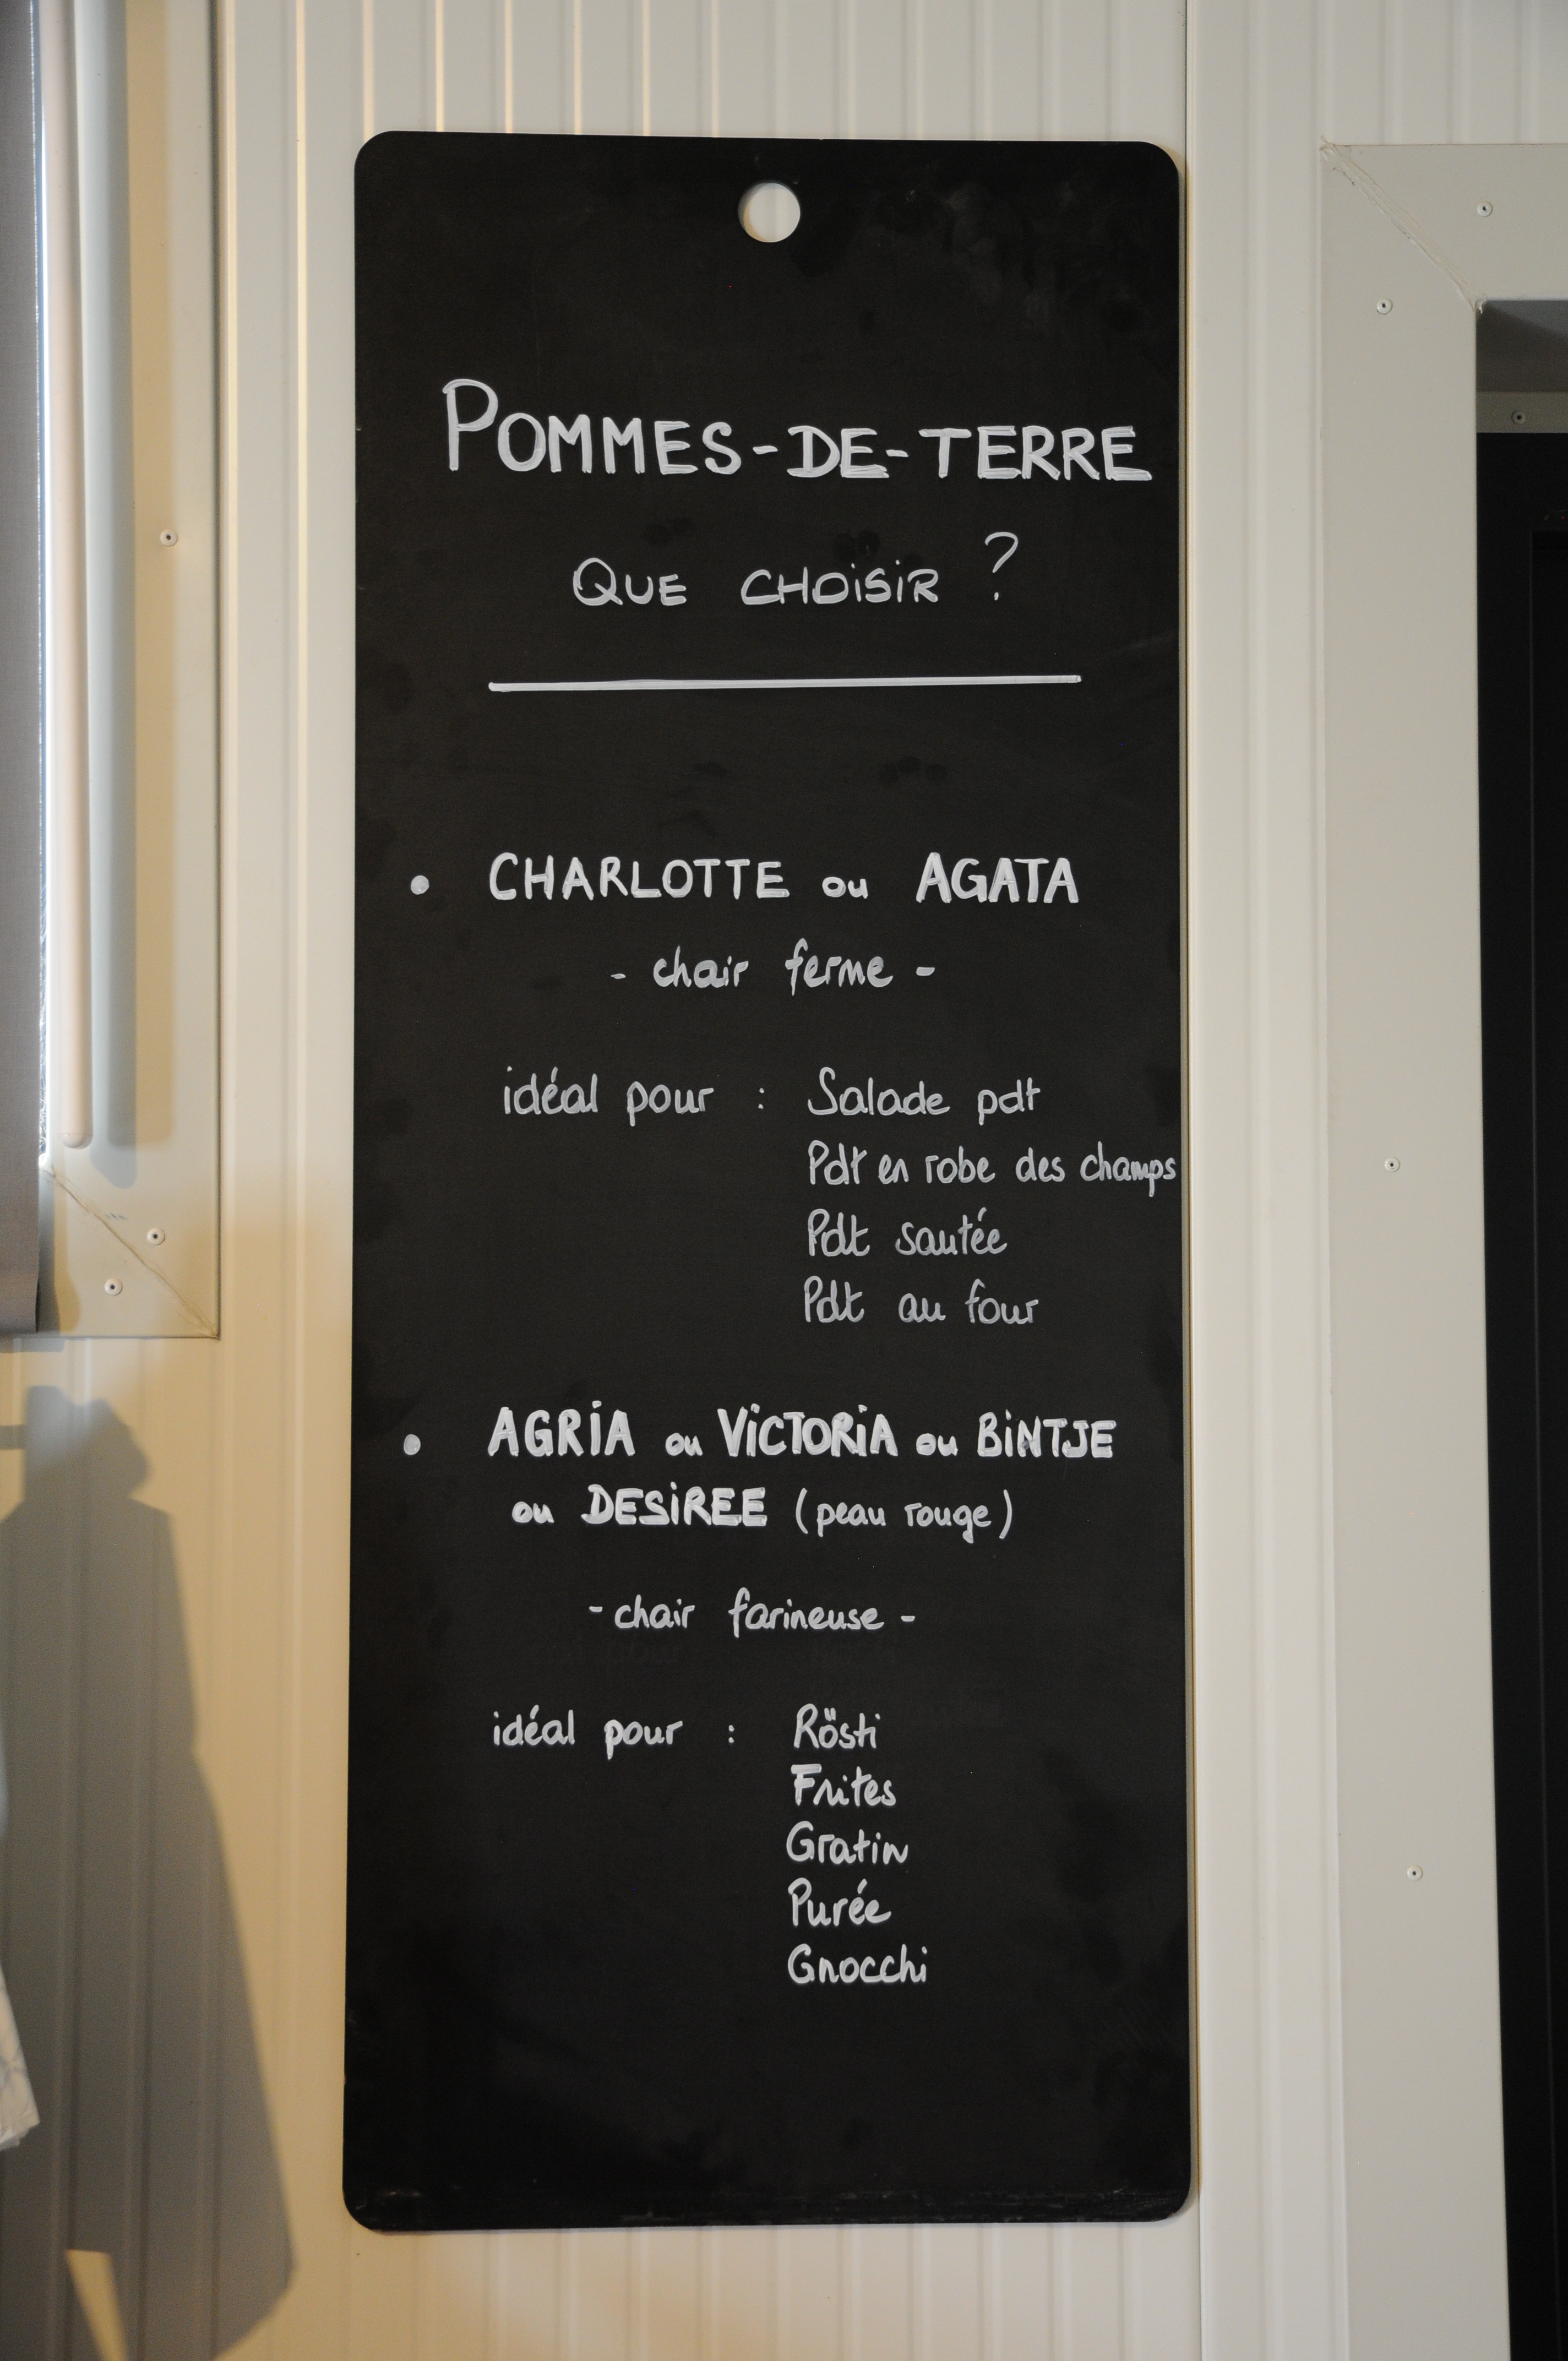 POMMES-DE-TERRE
QUE CHOISIR ?
• CHARLOTTE ou AGATA
- chair ferme -
idéal pour : Salade pdt
Pdt en robe des champs
Pdt sautée
Pdt au four
• AGRIA ou VICTORIA ou BINTJE
ou DESIREE (peau rouge)
- chair farineuse -
idéal pour : Rösti
Frites
Gratin
Purée
Gnocchi